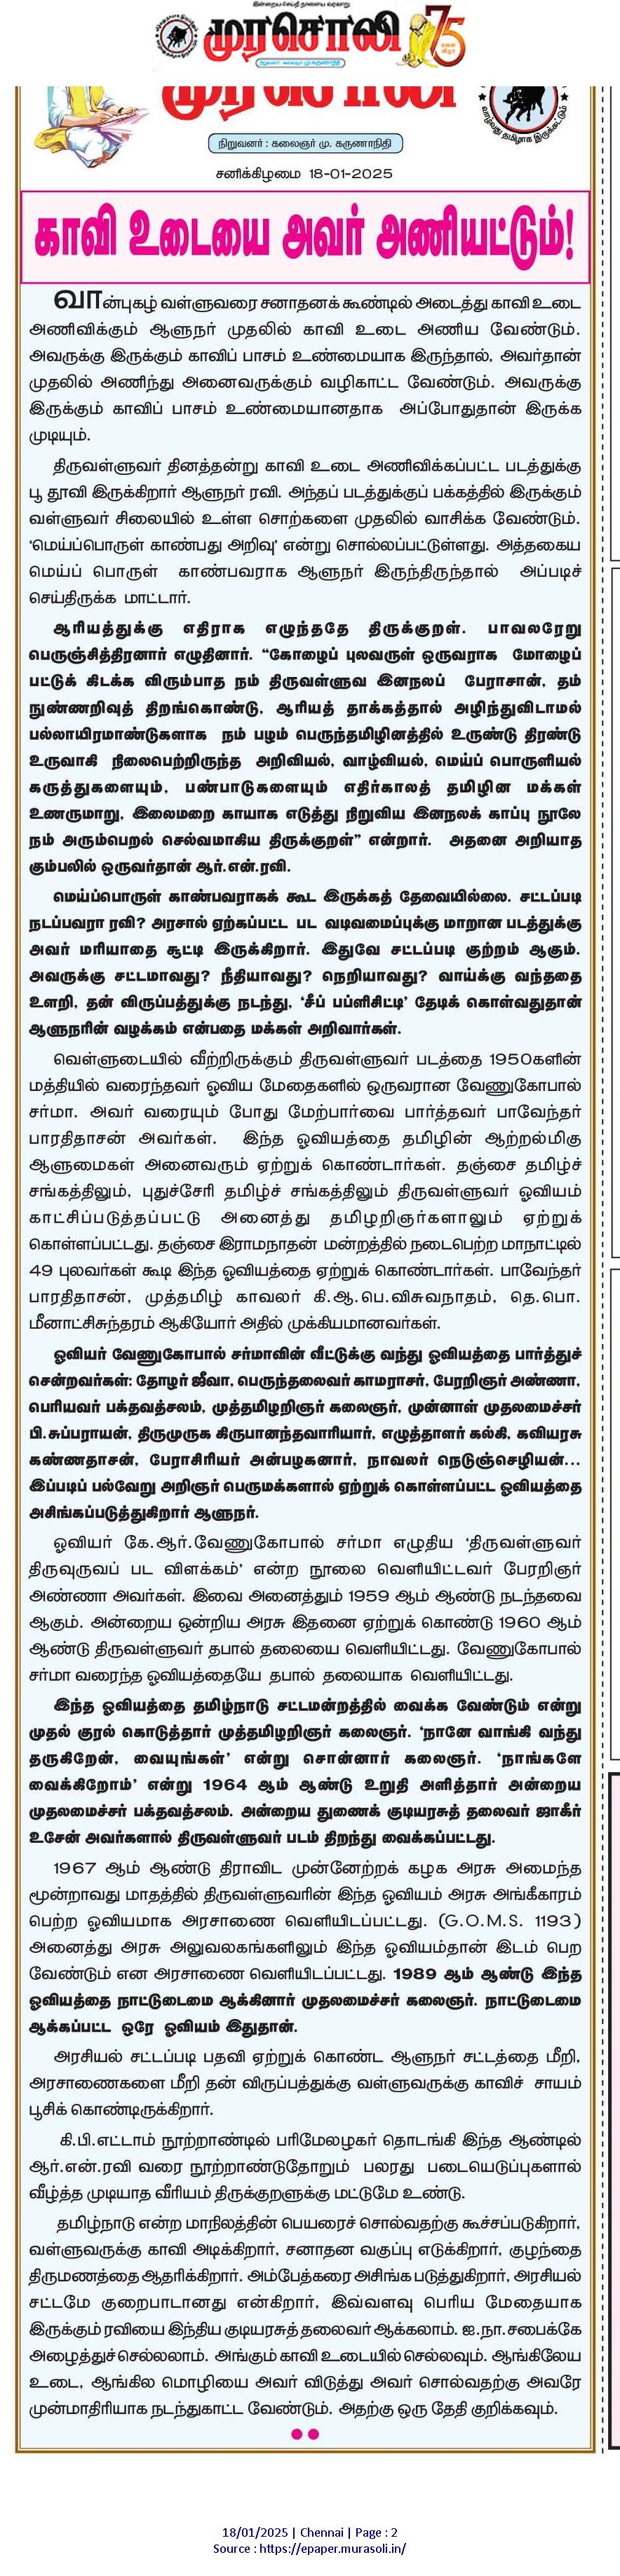 இன்றைய செய்தி நாளைய வரலாறு
முரசொலி 75
நிறுவனர் : கலைஞர் மு.கருணாநிதி
முரசொலி
வாழ்வது தமிழாக இருக்கட்டும்
நிறுவனர் : கலைஞர் மு. கருணாநிதி
சனிக்கிழமை 18-01-2025
காவி உடையை அவர் அணியட்டும்!
வான்புகழ் வள்ளுவரை சனாதனக் கூண்டில் அடைத்து காவி உடை
அணிவிக்கும் ஆளுநர் முதலில் காவி உடை அணிய வேண்டும்.
அவருக்கு இருக்கும் காவிப் பாசம் உண்மையாக இருந்தால், அவர்தான்
முதலில் அணிந்து அனைவருக்கும் வழிகாட்ட வேண்டும். அவருக்கு
இருக்கும் காவிப் பாசம் உண்மையானதாக அப்போதுதான் இருக்க
முடியும்.
திருவள்ளுவர் தினத்தன்று காவி உடை அணிவிக்கப்பட்ட படத்துக்கு
பூ தூவி இருக்கிறார் ஆளுநர் ரவி. அந்தப் படத்துக்குப் பக்கத்தில் இருக்கும்
வள்ளுவர் சிலையில் உள்ள சொற்களை முதலில் வாசிக்க வேண்டும்.
‘மெய்ப்பொருள் காண்பது அறிவு’ என்று சொல்லப்பட்டுள்ளது. அத்தகைய
மெய்ப் பொருள் காண்பவராக ஆளுநர் இருந்திருந்தால் அப்படிச்
செய்திருக்க மாட்டார்.
ஆரியத்துக்கு எதிராக எழுந்ததே திருக்குறள். பாவலரேறு
பெருஞ்சித்திரனார் எழுதினார். “கோழைப் புலவருள் ஒருவராக மோழைப்
பட்டுக் கிடக்க விரும்பாத நம் திருவள்ளுவ இனநலப் பேராசான், தம்
நுண்ணறிவுத் திறங்கொண்டு, ஆரியத் தாக்கத்தால் அழிந்துவிடாமல்
பல்லாயிரமாண்டுகளாக நம் பழம் பெருந்தமிழினத்தில் உருண்டு திரண்டு
உருவாகி நிலைபெற்றிருந்த அறிவியல், வாழ்வியல், மெய்ப் பொருளியல்
கருத்துகளையும், பண்பாடுகளையும் எதிர்காலத் தமிழின மக்கள்
உணருமாறு, இலைமறை காயாக எடுத்து நிறுவிய இனநலக் காப்பு நூலே
நம் அரும்பெறல் செல்வமாகிய திருக்குறள்” என்றார். அதனை அறியாத
கும்பலில் ஒருவர்தான் ஆர்.என்.ரவி.
மெய்ப்பொருள் காண்பவராகக் கூட இருக்கத் தேவையில்லை. சட்டப்படி
நடப்பவரா ரவி? அரசால் ஏற்கப்பட்ட பட வடிவமைப்புக்கு மாறான படத்துக்கு
அவர் மரியாதை சூட்டி இருக்கிறார். இதுவே சட்டப்படி குற்றம் ஆகும்.
அவருக்கு சட்டமாவது? நீதியாவது? நெறியாவது? வாய்க்கு வந்ததை
உளறி, தன் விருப்பத்துக்கு நடந்து, ‘சீப் பப்ளிசிட்டி’ தேடிக் கொள்வதுதான்
ஆளுநரின் வழக்கம் என்பதை மக்கள் அறிவார்கள்.
வெள்ளுடையில் வீற்றிருக்கும் திருவள்ளுவர் படத்தை 1950களின்
மத்தியில் வரைந்தவர் ஓவிய மேதைகளில் ஒருவரான வேணுகோபால்
சர்மா. அவர் வரையும் போது மேற்பார்வை பார்த்தவர் பாவேந்தர்
பாரதிதாசன் அவர்கள். இந்த ஓவியத்தை தமிழின் ஆற்றல்மிகு
ஆளுமைகள் அனைவரும் ஏற்றுக் கொண்டார்கள். தஞ்சை தமிழ்ச்
சங்கத்திலும், புதுச்சேரி தமிழ்ச் சங்கத்திலும் திருவள்ளுவர் ஓவியம்
காட்சிப்படுத்தப்பட்டு அனைத்து தமிழறிஞர்களாலும் ஏற்றுக்
கொள்ளப்பட்டது. தஞ்சை இராமநாதன் மன்றத்தில் நடைபெற்ற மாநாட்டில்
49 புலவர்கள் கூடி இந்த ஓவியத்தை ஏற்றுக் கொண்டார்கள். பாவேந்தர்
பாரதிதாசன், முத்தமிழ் காவலர் கி.ஆ.பெ.விசுவநாதம், தெ.பொ.
மீனாட்சிசுந்தரம் ஆகியோர் அதில் முக்கியமானவர்கள்.
ஓவியர் வேணுகோபால் சர்மாவின் வீட்டுக்கு வந்து ஓவியத்தை பார்த்துச்
சென்றவர்கள்: தோழர் ஜீவா, பெருந்தலைவர் காமராசர், பேரறிஞர் அண்ணா,
பெரியவர் பக்தவத்சலம், முத்தமிழறிஞர் கலைஞர், முன்னாள் முதலமைச்சர்
பி.சுப்பராயன், திருமுருக கிருபானந்தவாரியார், எழுத்தாளர் கல்கி, கவியரசு
கண்ணதாசன், பேராசிரியர் அன்பழகனார், நாவலர் நெடுஞ்செழியன்...
இப்படிப் பல்வேறு அறிஞர் பெருமக்களால் ஏற்றுக் கொள்ளப்பட்ட ஓவியத்தை
அசிங்கப்படுத்துகிறார் ஆளுநர்.
ஓவியர் கே.ஆர்.வேணுகோபால் சர்மா எழுதிய ‘திருவள்ளுவர்
திருவுருவப் பட விளக்கம்’ என்ற நூலை வெளியிட்டவர் பேரறிஞர்
அண்ணா அவர்கள். இவை அனைத்தும் 1959 ஆம் ஆண்டு நடந்தவை
ஆகும். அன்றைய ஒன்றிய அரசு இதனை ஏற்றுக் கொண்டு 1960 ஆம்
ஆண்டு திருவள்ளுவர் தபால் தலையை வெளியிட்டது. வேணுகோபால்
சர்மா வரைந்த ஓவியத்தையே தபால் தலையாக வெளியிட்டது.
இந்த ஓவியத்தை தமிழ்நாடு சட்டமன்றத்தில் வைக்க வேண்டும் என்று
முதல் குரல் கொடுத்தார் முத்தமிழறிஞர் கலைஞர். ‘நானே வாங்கி வந்து
தருகிறேன், வையுங்கள்’ என்று சொன்னார் கலைஞர். ‘நாங்களே
வைக்கிறோம்’ என்று 1964 ஆம் ஆண்டு உறுதி அளித்தார் அன்றைய
முதலமைச்சர் பக்தவத்சலம். அன்றைய துணைக் குடியரசுத் தலைவர் ஜாகீர்
உசேன் அவர்களால் திருவள்ளுவர் படம் திறந்து வைக்கப்பட்டது.
1967 ஆம் ஆண்டு திராவிட முன்னேற்றக் கழக அரசு அமைந்த
மூன்றாவது மாதத்தில் திருவள்ளுவரின் இந்த ஓவியம் அரசு அங்கீகாரம்
பெற்ற ஓவியமாக அரசாணை வெளியிடப்பட்டது. (G.O.M.S. 1193)
அனைத்து அரசு அலுவலகங்களிலும் இந்த ஓவியம்தான் இடம் பெற
வேண்டும் என அரசாணை வெளியிடப்பட்டது. 1989 ஆம் ஆண்டு இந்த
ஓவியத்தை நாட்டுடைமை ஆக்கினார் முதலமைச்சர் கலைஞர். நாட்டுடைமை
ஆக்கப்பட்ட ஒரே ஓவியம் இதுதான்.
அரசியல் சட்டப்படி பதவி ஏற்றுக் கொண்ட ஆளுநர் சட்டத்தை மீறி,
அரசாணைகளை மீறி தன் விருப்பத்துக்கு வள்ளுவருக்கு காவிச் சாயம்
பூசிக் கொண்டிருக்கிறார்.
கி.பி.எட்டாம் நூற்றாண்டில் பரிமேலழகர் தொடங்கி இந்த ஆண்டில்
ஆர்.என்.ரவி வரை நூற்றாண்டுதோறும் பலரது படையெடுப்புகளால்
வீழ்த்த முடியாத வீரியம் திருக்குறளுக்கு மட்டுமே உண்டு.
தமிழ்நாடு என்ற மாநிலத்தின் பெயரைச் சொல்வதற்கு கூச்சப்படுகிறார்,
வள்ளுவருக்கு காவி அடிக்கிறார், சனாதன வகுப்பு எடுக்கிறார், குழந்தை
திருமணத்தை ஆதரிக்கிறார். அம்பேத்கரை அசிங்க படுத்துகிறார், அரசியல்
சட்டமே குறைபாடானது என்கிறார், இவ்வளவு பெரிய மேதையாக
இருக்கும் ரவியை இந்திய குடியரசுத் தலைவர் ஆக்கலாம். ஐ.நா.சபைக்கே
அழைத்துச் செல்லலாம். அங்கும் காவி உடையில் செல்லவும். ஆங்கிலேய
உடை, ஆங்கில மொழியை அவர் விடுத்து அவர் சொல்வதற்கு அவரே
முன்மாதிரியாக நடந்துகாட்ட வேண்டும். அதற்கு ஒரு தேதி குறிக்கவும்.
18/01/2025 | Chennai | Page : 2
Source : https://epaper.murasoli.in/